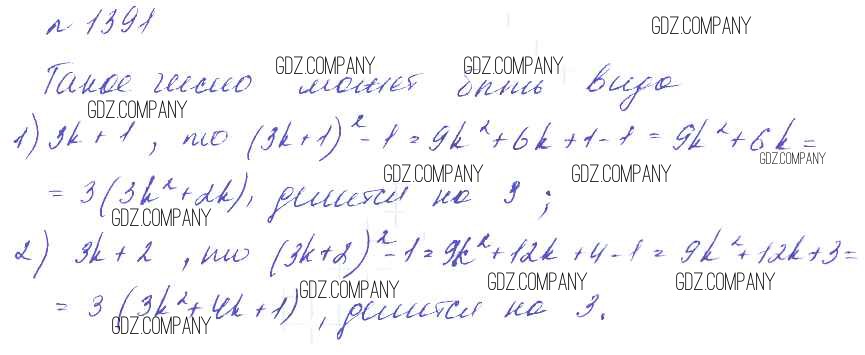 № 1391
GDZ.COMPANY
Такое число может быть вида
GDZ.COMPANY GDZ.COMPANY
GDZ.COMPANY
1) 3k+1, то (3k+1)²-1=9k²+6k+1-1=9k²+6k=
GDZ.COMPANY
GDZ.COMPANY GDZ.COMPANY
=3(3k²+2k), делится на 3;
GDZ.COMPANY
2) 3k+2, то (3k+2)²-1=9k²+12k+4-1=9k²+12k+3=
GDZ.COMPANY GDZ.COMPANY GDZ.COMPANY
=3(3k²+4k+1), делится на 3.
GDZ.COMPANY